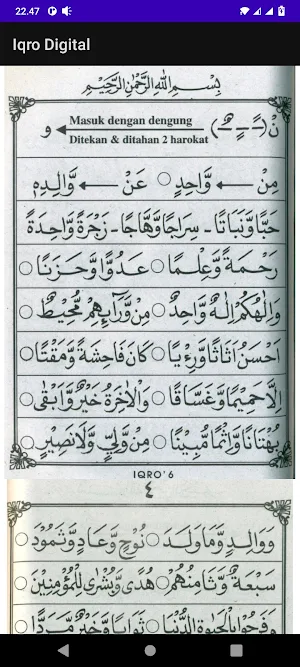 22.47
Iqro Digital
بِسْمِ اللهِ الرَّحْمٰنِ الرَّحِيْمِ
نْ (ـًـ ـٍـ ـٌـ) Masuk dengan dengung Ditekan & ditahan 2 harokat و
مِنْ ← وَّاحِدٍ ○ عَنْ ← وَّالِدِهِ
حَبًّا وَّنَبَاتًا - سِرَاجًا وَّهَّاجًا - زَجْرَةٌ وَّاحِدَةٌ
رَحْمَةً وَّعِلْمًا ○ عَدُوًّا وَّحَزَنًا ○
وَاِلٰهُكُمْ اِلٰهٌ وَّاحِدٌ ○ مِنْ وَّرَآئِهِمْ مُّحِيْطٌ ○
اَحْسَنُ اَثَاثًا وَّرِءْيًا ○ كَانَ فَاحِشَةً وَّمَقْتًا ○
اِلَّا حَمِيْمًا وَّغَسَّاقًا ○ وَالْاٰخِرَةُ خَيْرٌ وَّاَبْقٰى ○
بُهْتَانًا وَّاِثْمًا مُّبِيْنًا ○ مِنْ وَّلِيٍّ وَّلَا نَصِيْرٍ ○
IQRO' 6
٤
وَوَالِدٍ وَّمَا وَلَدَ ○ نُوْحٍ وَّعَادٍ وَّثَمُوْدَ ○
سَبْعَةٌ وَّثَامِنُهُمْ ○ هُدًى وَّبُشْرٰى لِلْمُؤْمِنِيْنَ ○
وَفَرِحُوْا بِالْحَيٰوةِ الدُّنْيَا ○ ثَوَابًا وَّخَيْرٌ مَّرَدًّا ○